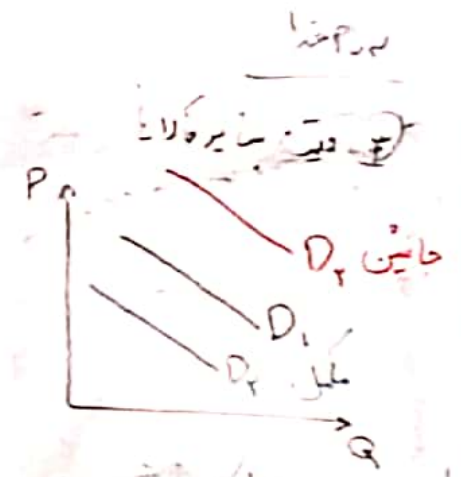 قیمت سایر کالا
P
D₂ جانشین
D₁
D₂ مکمل
Q